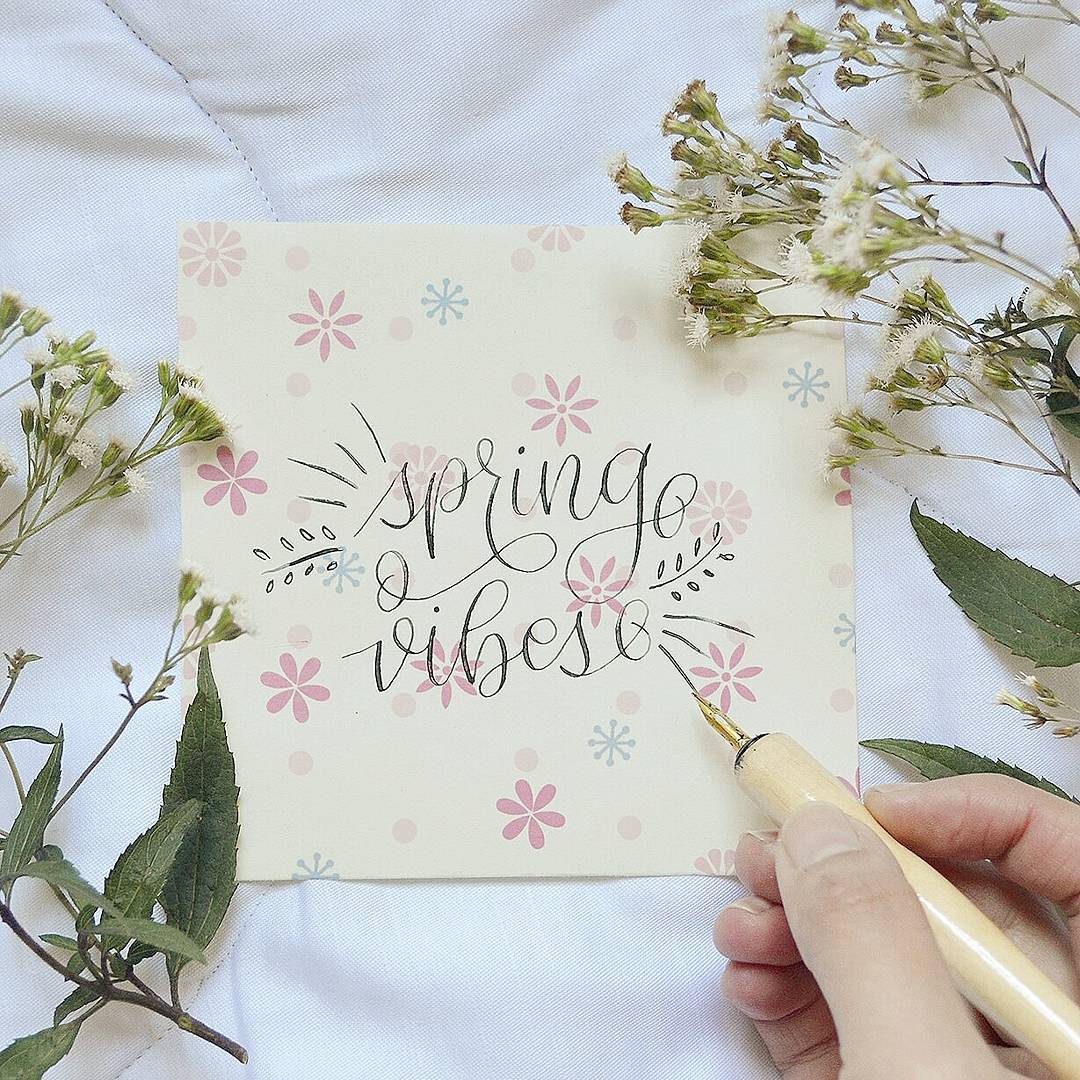 spring
vibes